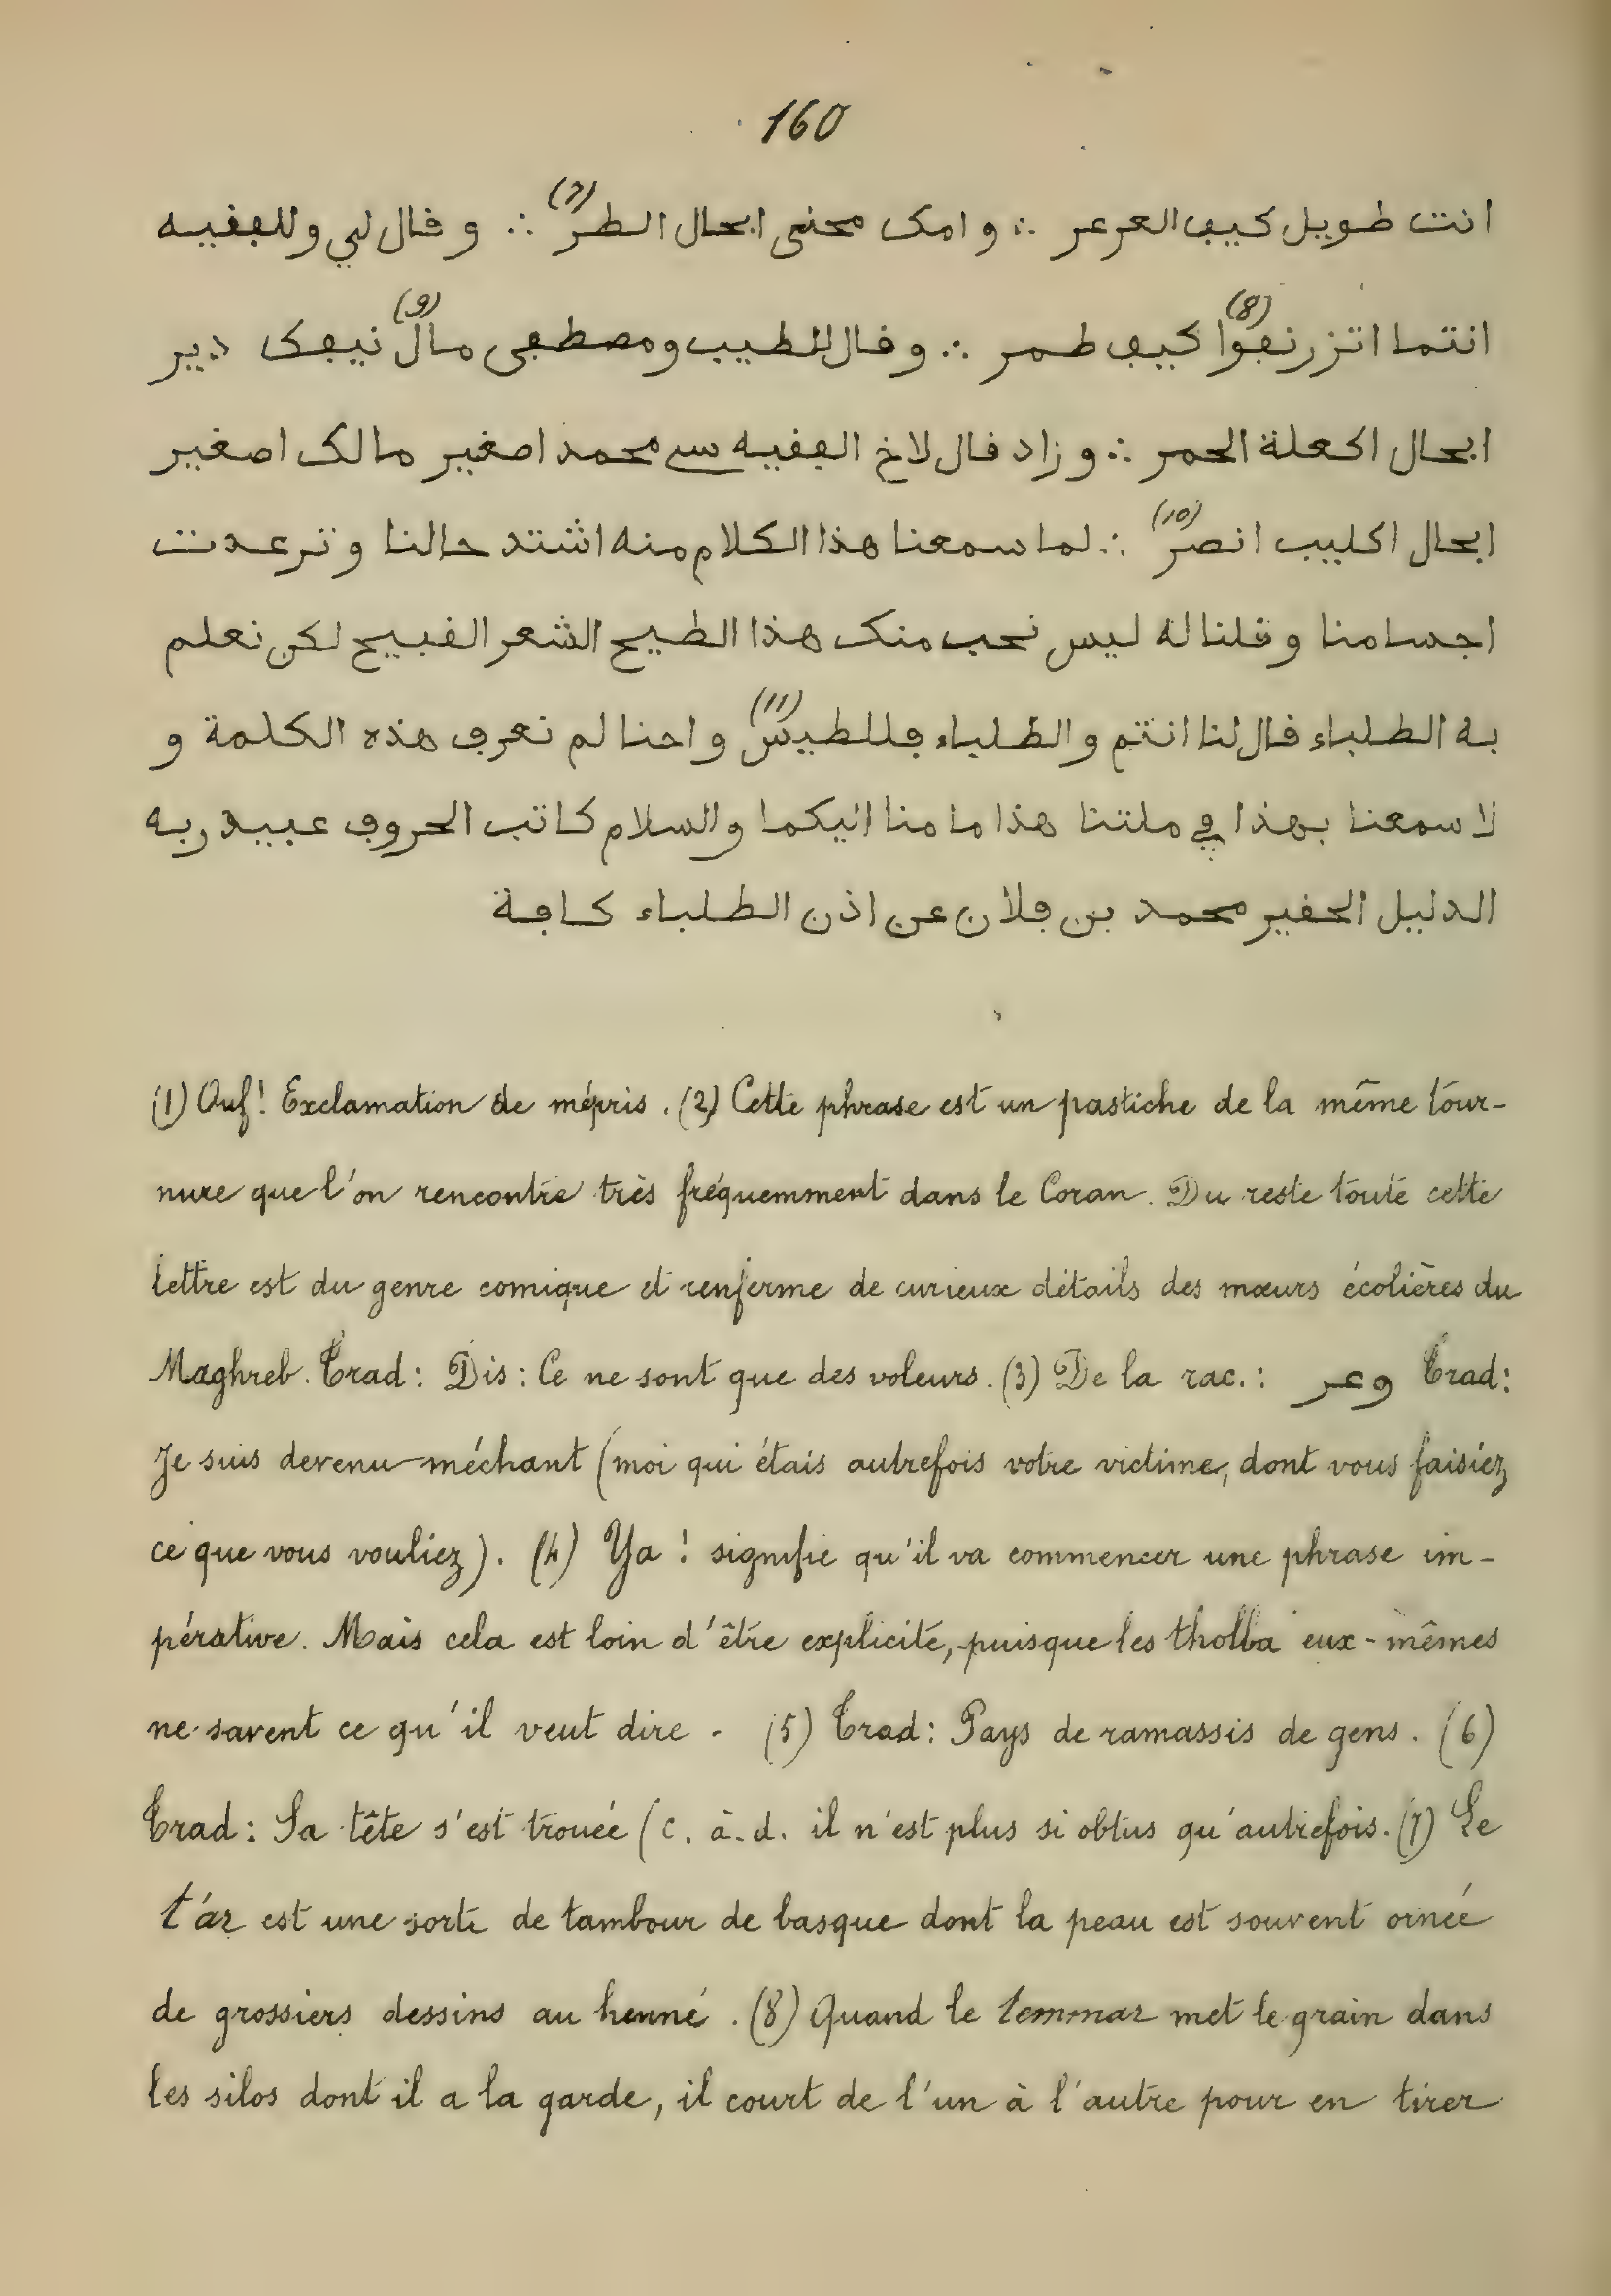 160
انت طويل كيف العرعر ∴ وامك محنى ابحال الطرّ (7) ∴ وقال لي وللفقيه
انتما اتزرنفوا (8) كيف طمر ∴ وقال للطيب ومصطفى مال (9) نيفك دير
ابحال اكعلة الحمر ∴ وزاد قال لاخ الفقيه سي محمد اصغير مالك اصغير
ابحال اكليب انصر (10) ∴ لما سمعنا هذا الكلام منه اشتد حالنا وترعدت
اجسامنا وقلنا له ليس نحب منك هذا الطيح الشعر القبيح لكن نعلم
به الطلباء قال لنا انتم والطلباء فللطيس (11) واحنا لم نعرف هذه الكلمة و
لا سمعنا بهذا في ملتنا هذا ما منا اليكما والسلام كاتب الحروف عبيد ربه
الدليل الحقير محمد بن فلان عن اذن الطلباء كافة
(1) Ouf! Exclamation de mépris. (2) Cette phrase est un pastiche de la même tour-
nure que l'on rencontre très fréquemment dans le Coran. Du reste toute cette
lettre est du genre comique et renferme de curieux détails des mœurs écolières du
Maghreb. Trad: Dis: Ce ne sont que des voleurs. (3) De la rac.: وعر Trad:
Je suis devenu méchant (moi qui étais autrefois votre victime, dont vous faisiez
ce que vous vouliez). (4) Ya! signifie qu'il va commencer une phrase im-
pérative. Mais cela est loin d'être explicite, puisque les tholba eux-mêmes
ne savent ce qu'il veut dire - (5) Trad: Pays de ramassis de gens. (6)
Trad: Sa tête s'est trouée (c. à. d. il n'est plus si obtus qu'autrefois. (7) Le
t'ar est une sorte de tambour de basque dont la peau est souvent ornée
de grossiers dessins au henné. (8) Quand le temmar met le grain dans
les silos dont il a la garde, il court de l'un à l'autre pour en tirer